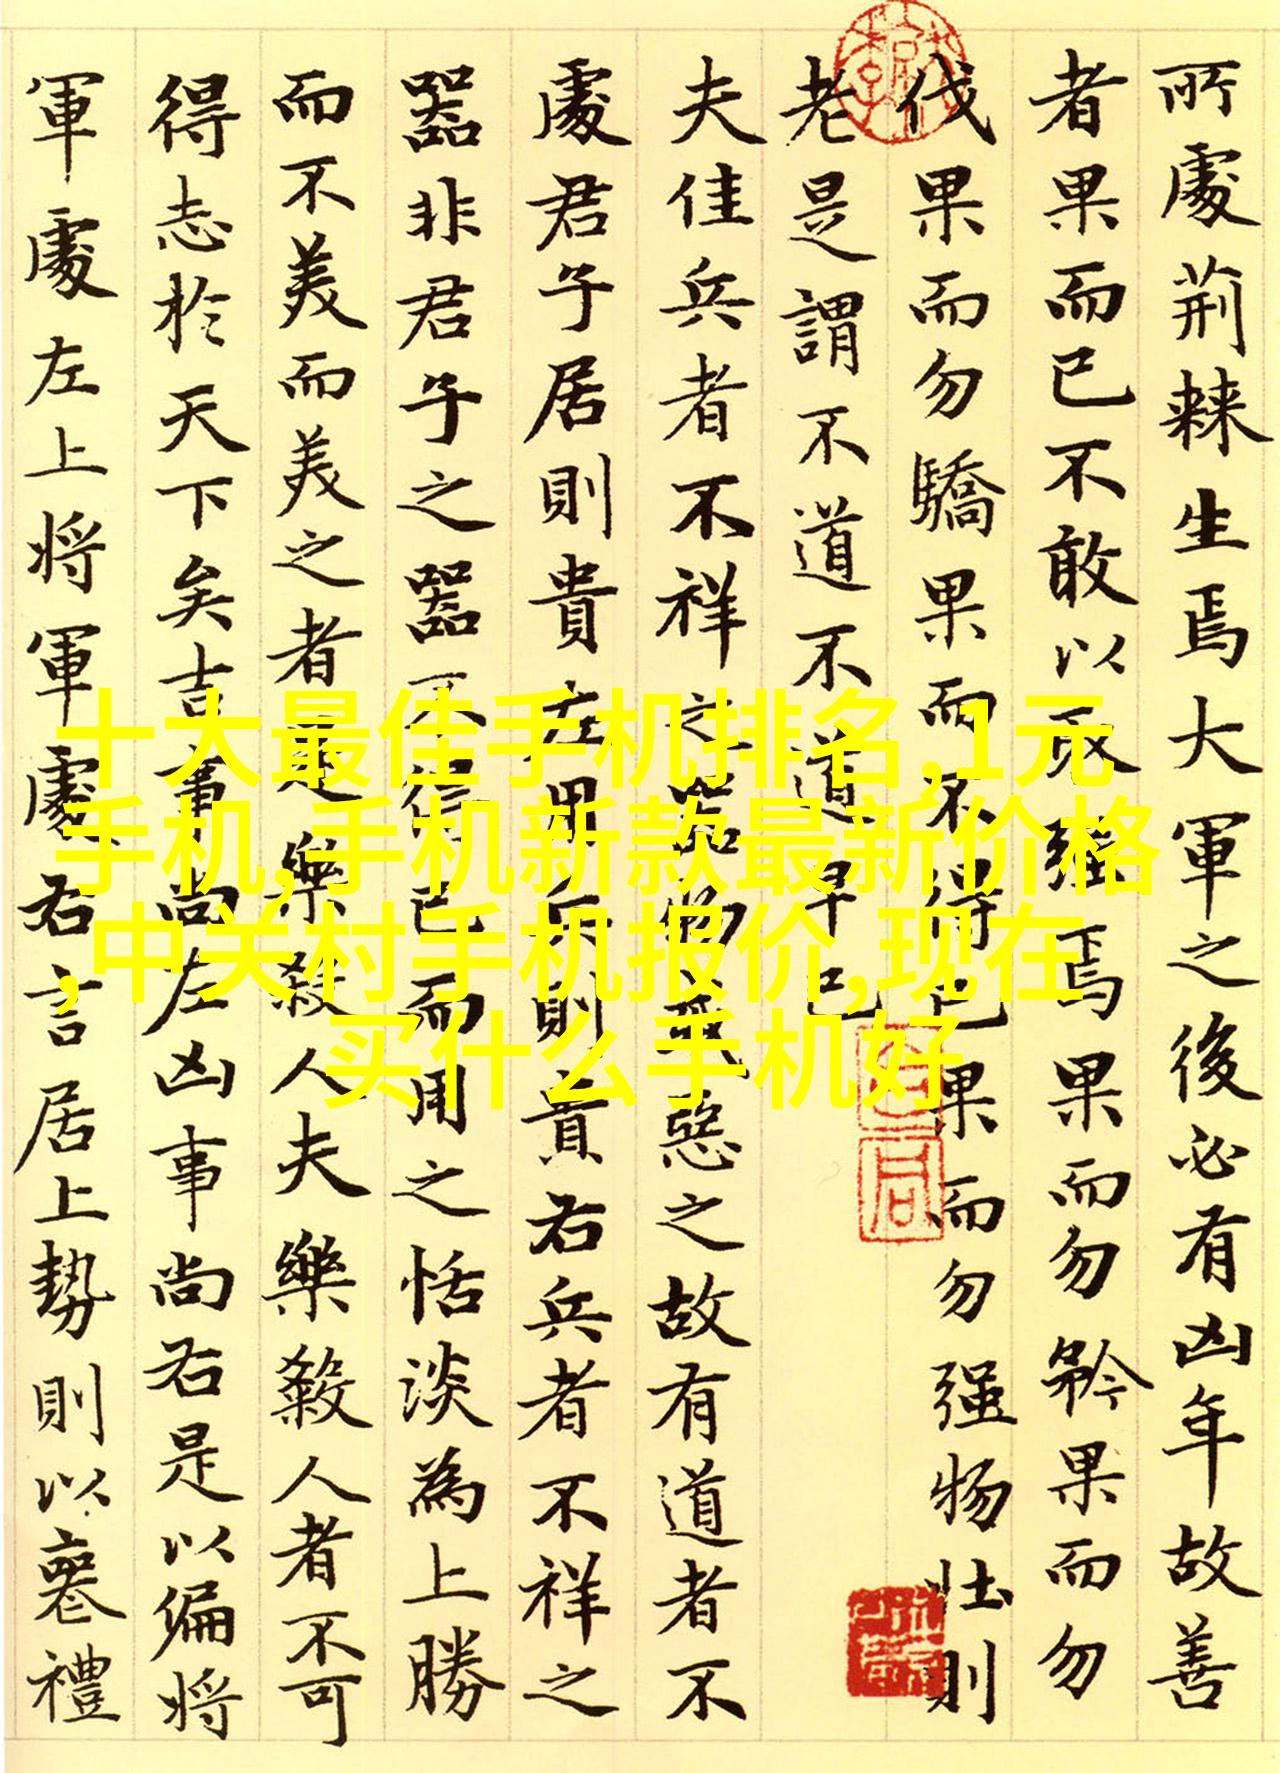 所處荊棘生焉大軍之後必有凶年故善
者果而已不敢以取强焉果而勿矜果而勿
伐果而勿驕果而不得已果而勿强物壯則
老是謂不道不道早已
夫佳兵者不祥之器物或惡之故有道者不
處君子居則貴左用兵則貴右兵者不祥之
器非君子之器不得已而用之恬淡為上勝
而不美而美之者是樂殺人夫樂殺人者不可
得志於天下矣吉事尚左凶事尚右是以偏將
軍處左上將軍處右言居上勢則以喪禮
十大最佳手机排名,1元
手机,手机新款最新价格
,中关村手机报价,现在
买什么手机好